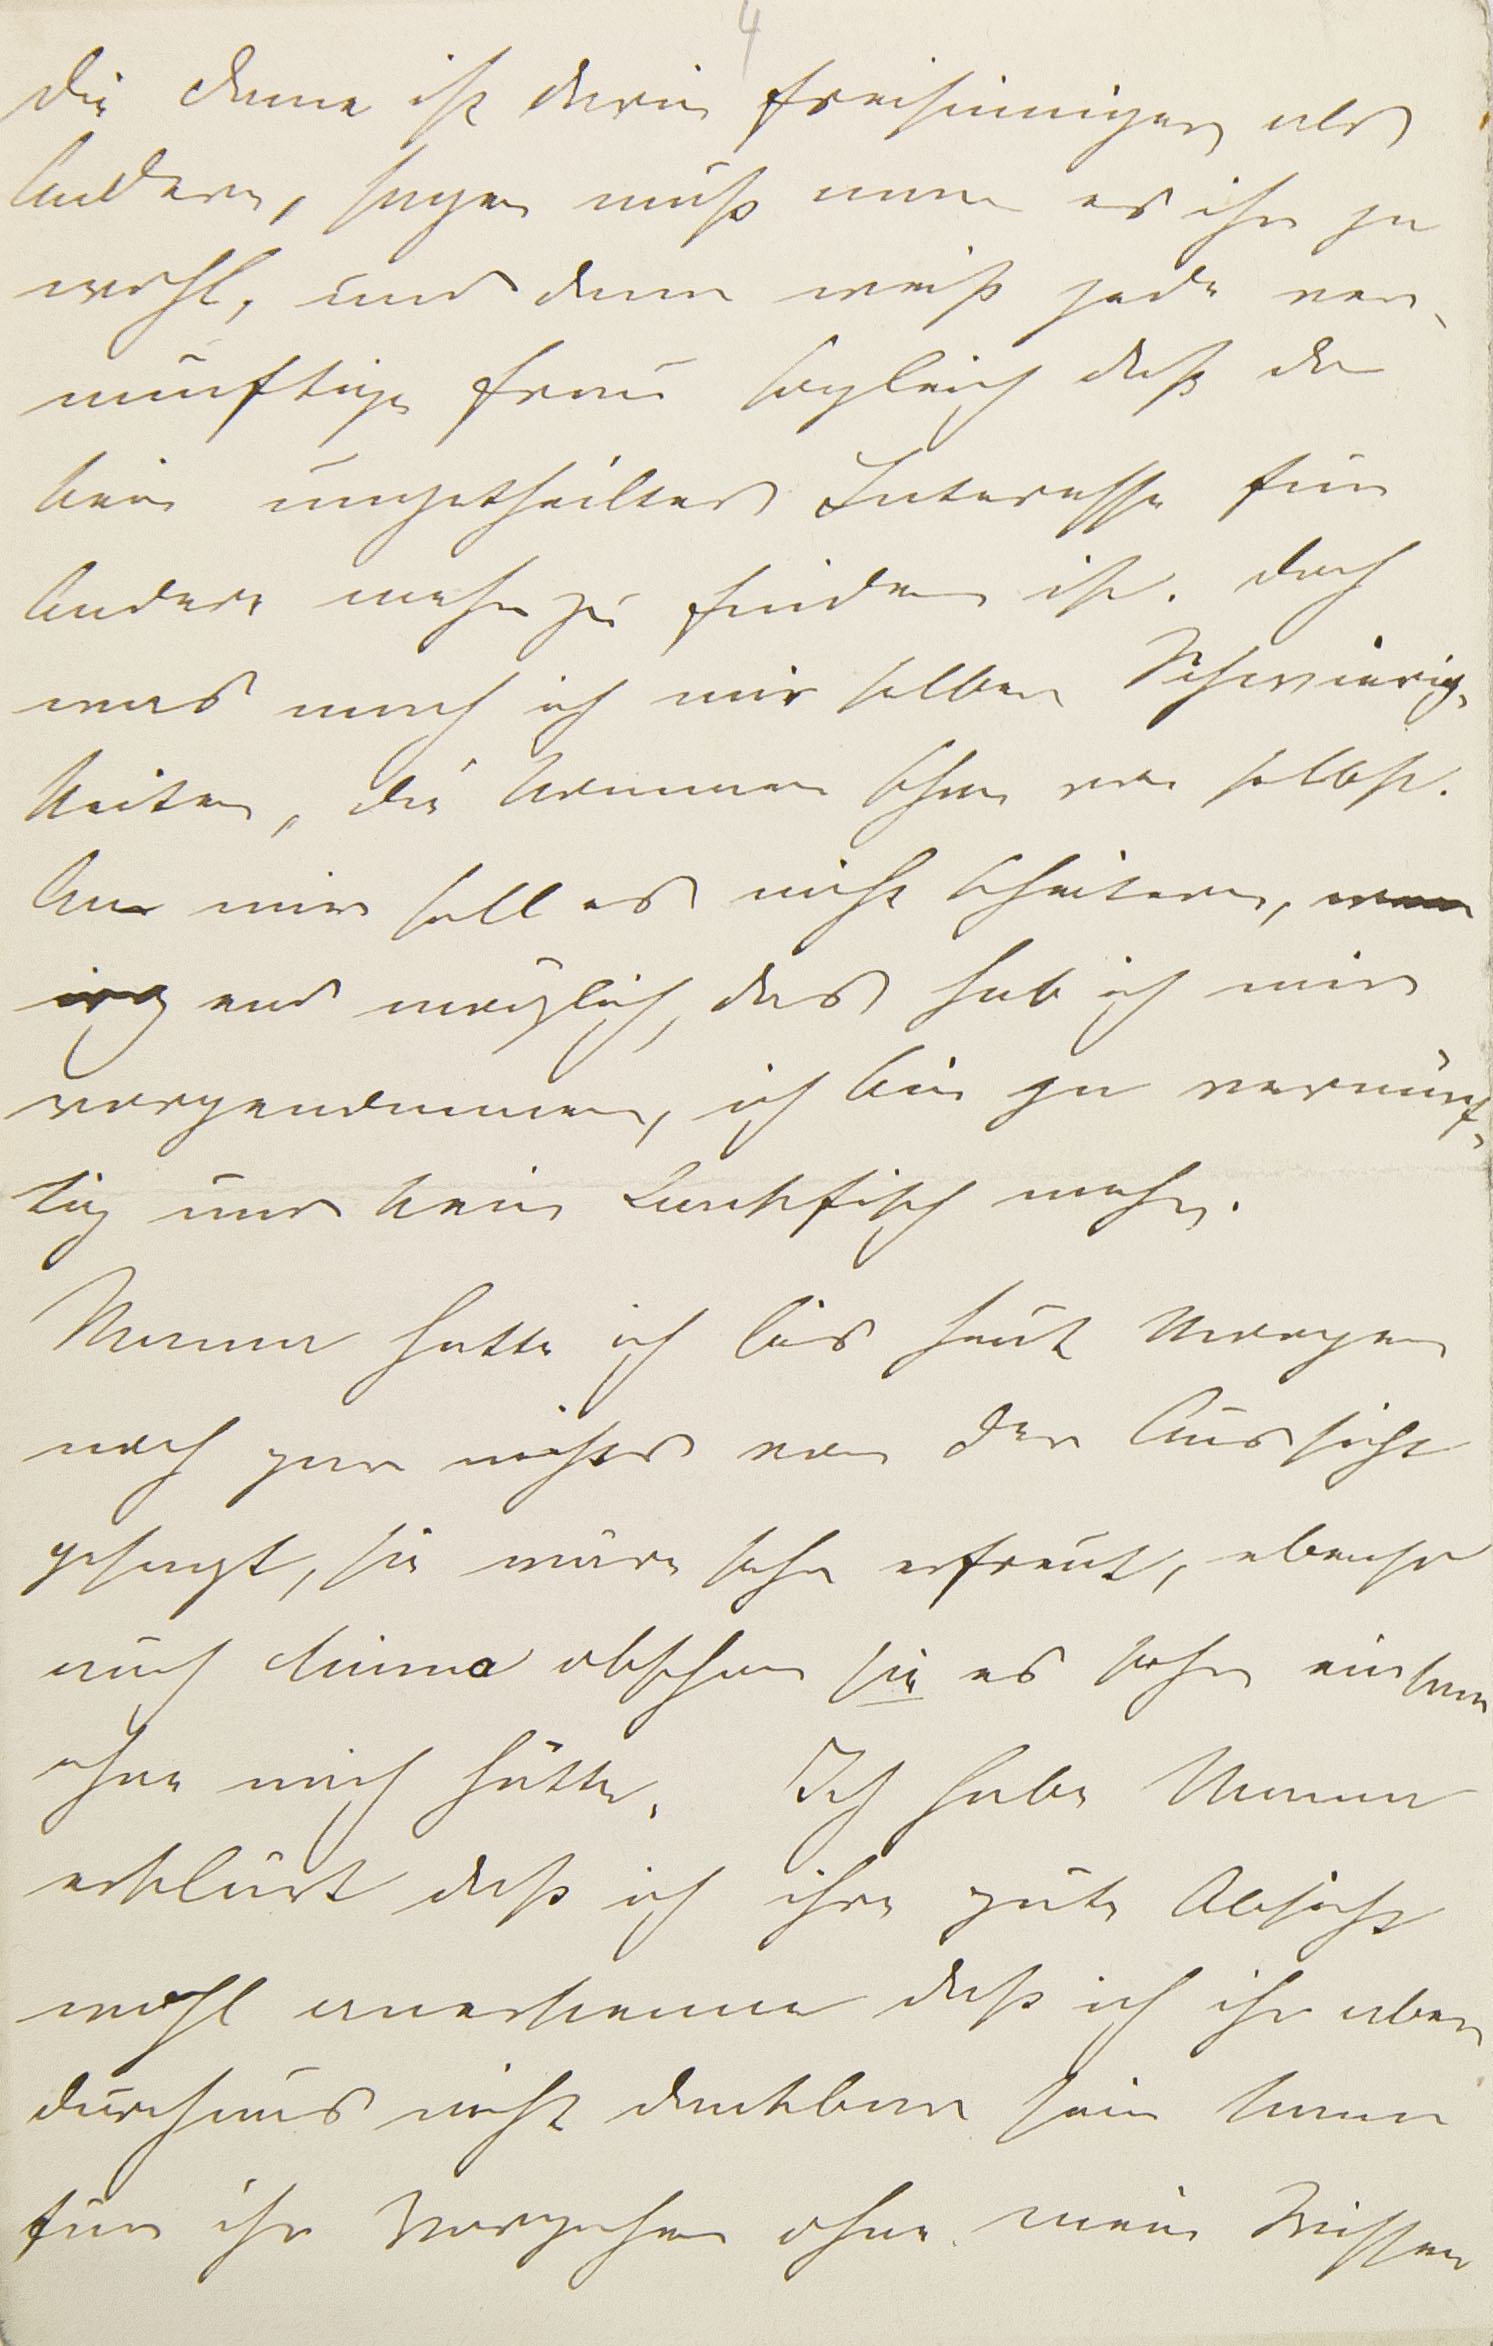 4
die Dame ist darin freisinniger als
Andere, sagen muß man es ihr ja
wohl, und dann weiß jede ver-
nünftige Frau sogleich daß da
kein ungetheiltes Interesse für
Andere mehr zu finden ist. Doch
was mach ich mir selber Schwierig-
keiten, die kommen schon von selbst.
An mir soll es nicht scheitern, wenn
irgend möglich, das hab ich mir
vorgenommen, ich bin ja vernünf-
tig und kein Backfisch mehr.
Mama hatte ich bis heut Morgen
noch gar nichts von der Aussicht
gesagt, sie wäre sehr erfreut, ebenso
auch Anna obschon sie es sehr einsam
ohne mich hätte. Ich habe Mama
erklärt daß ich ihre gute Absicht
wohl anerkenne daß ich ihr aber
durchaus nicht dankbar sein kann
für ihr Vorgehen ohne mein Wissen